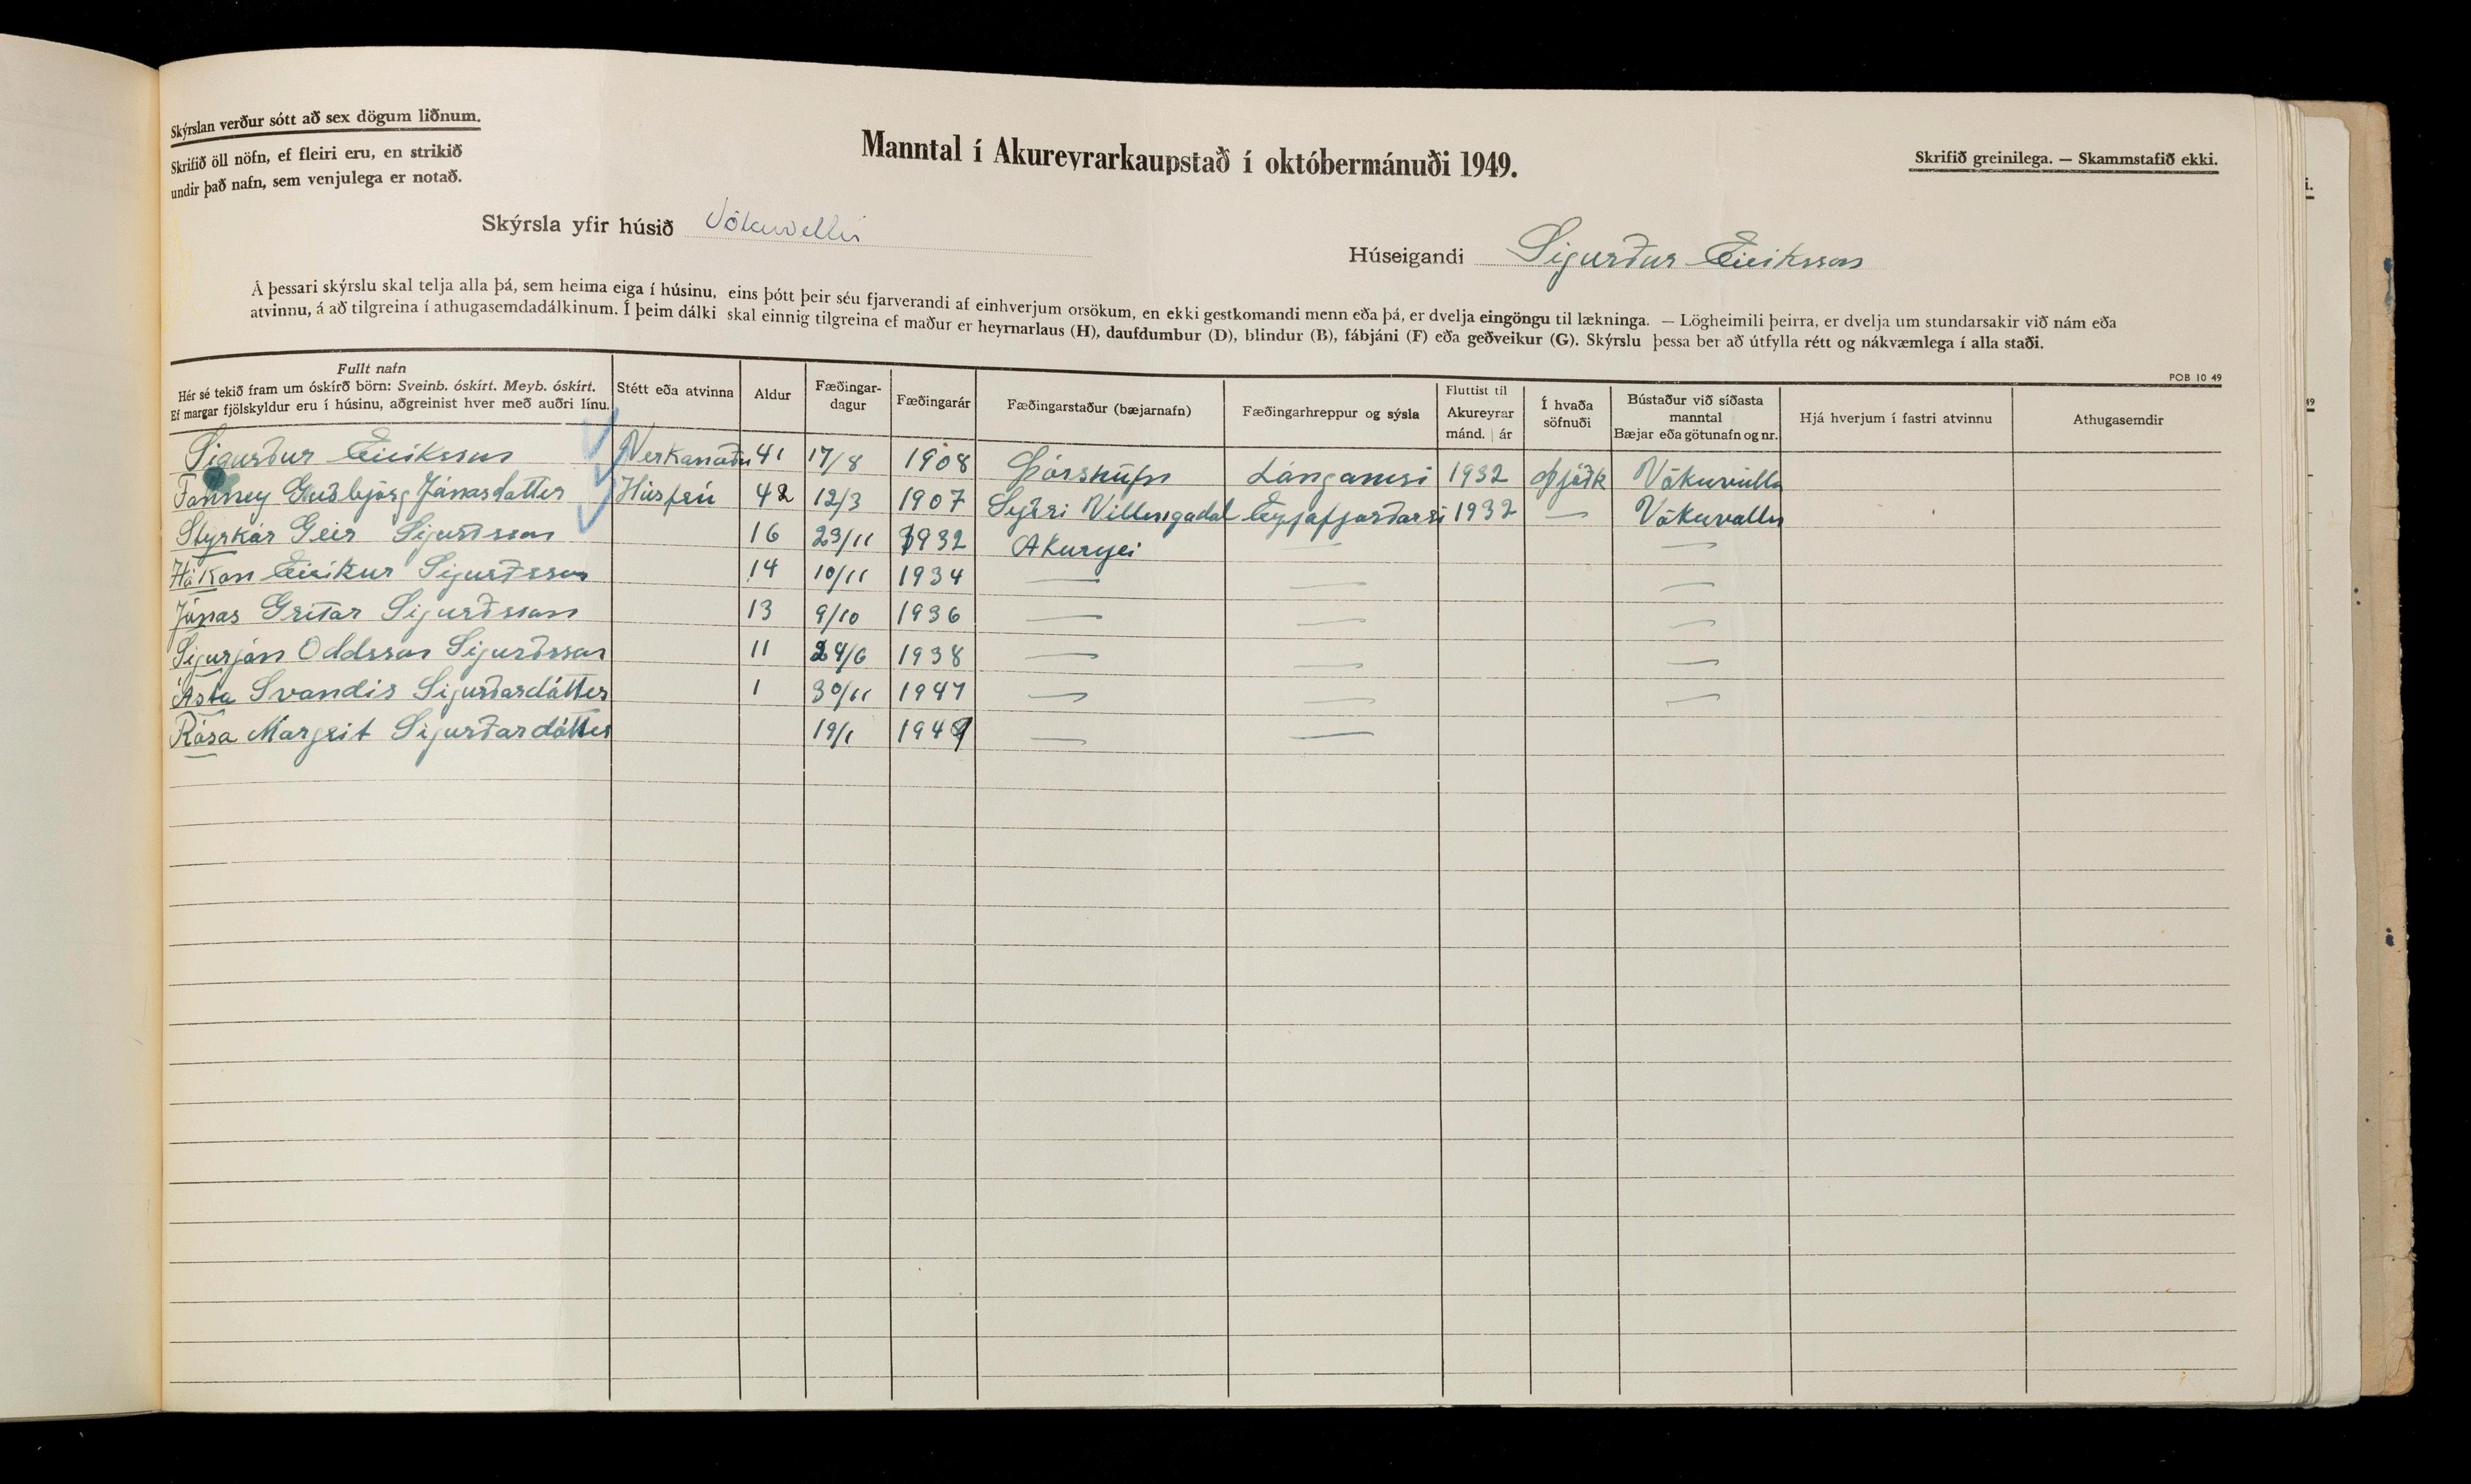 Skýrslan verður sótt að sex dögum liðnum.
Skrifið öll nöfn, ef fleiri eru, en strikið
undir það nafn, sem venjulega er notað.
Manntal í Akureyrarkaupstað í októbermánuði 1949.
Skrifið greinilega. — Skammstafið ekki.
Skýrsla yfir húsið Vökuvellir
Húseigandi Sigurður Eiríksson
Á þessari skýrslu skal telja alla þá, sem heima eiga í húsinu, eins þótt þeir séu fjarverandi af einhverjum orsökum, en ekki gestkomandi menn eða þá, er dvelja eingöngu til lækninga. — Lögheimili þeirra, er dvelja um stundarsakir við nám eða
atvinnu, á að tilgreina í athugasemdadálkinum. Í þeim dálki skal einnig tilgreina ef maður er heyrnarlaus (H), daufdumbur (D), blindur (B), fábjáni (F) eða geðveikur (G). Skýrslu þessa ber að útfylla rétt og nákvæmlega í alla staði.
POB 10 49
Fullt nafn
Hér sé tekið fram um óskírð börn: Sveinb. óskírt. Meyb. óskírt.
Ef margar fjölskyldur eru í húsinu, aðgreinist hver með auðri línu.
Stétt eða atvinna
Aldur
Fæðingar-
dagur
Fæðingarár
Fæðingarstaður (bæjarnafn)
Fæðingarhreppur og sýsla
Fluttist til
Akureyrar
mánd. | ár
Í hvaða
söfnuði
Bústaður við síðasta
manntal
Bæjar eða götunafn og nr.
Hjá hverjum í fastri atvinnu
Athugasemdir
Sigurður Eiríksson Verkamaður 41 17/8 1908 Þórshöfn Langanesi 1932 Þjóðk Vökuvöllu
Fanney Guðbjörg Jónasdóttir Húsfrú 42 12/3 1907 Syðri Villingadal Eyjafjarðars 1932 — Vökuvallir
Styrkár Geir Sigurðsson 16 23/11 1932 Akureyri — —
Hákon Eiríkur Sigurðsson 14 10/11 1934 — — —
Jónas Grétar Sigurðsson 13 9/10 1936 — — —
Sigurjón Oddsson Sigurðsson 11 24/6 1938 — — —
Ásta Svandís Sigurðardóttir 1 30/11 1947 — — —
Rósa Margrét Sigurðardóttir 19/1 1949 — —